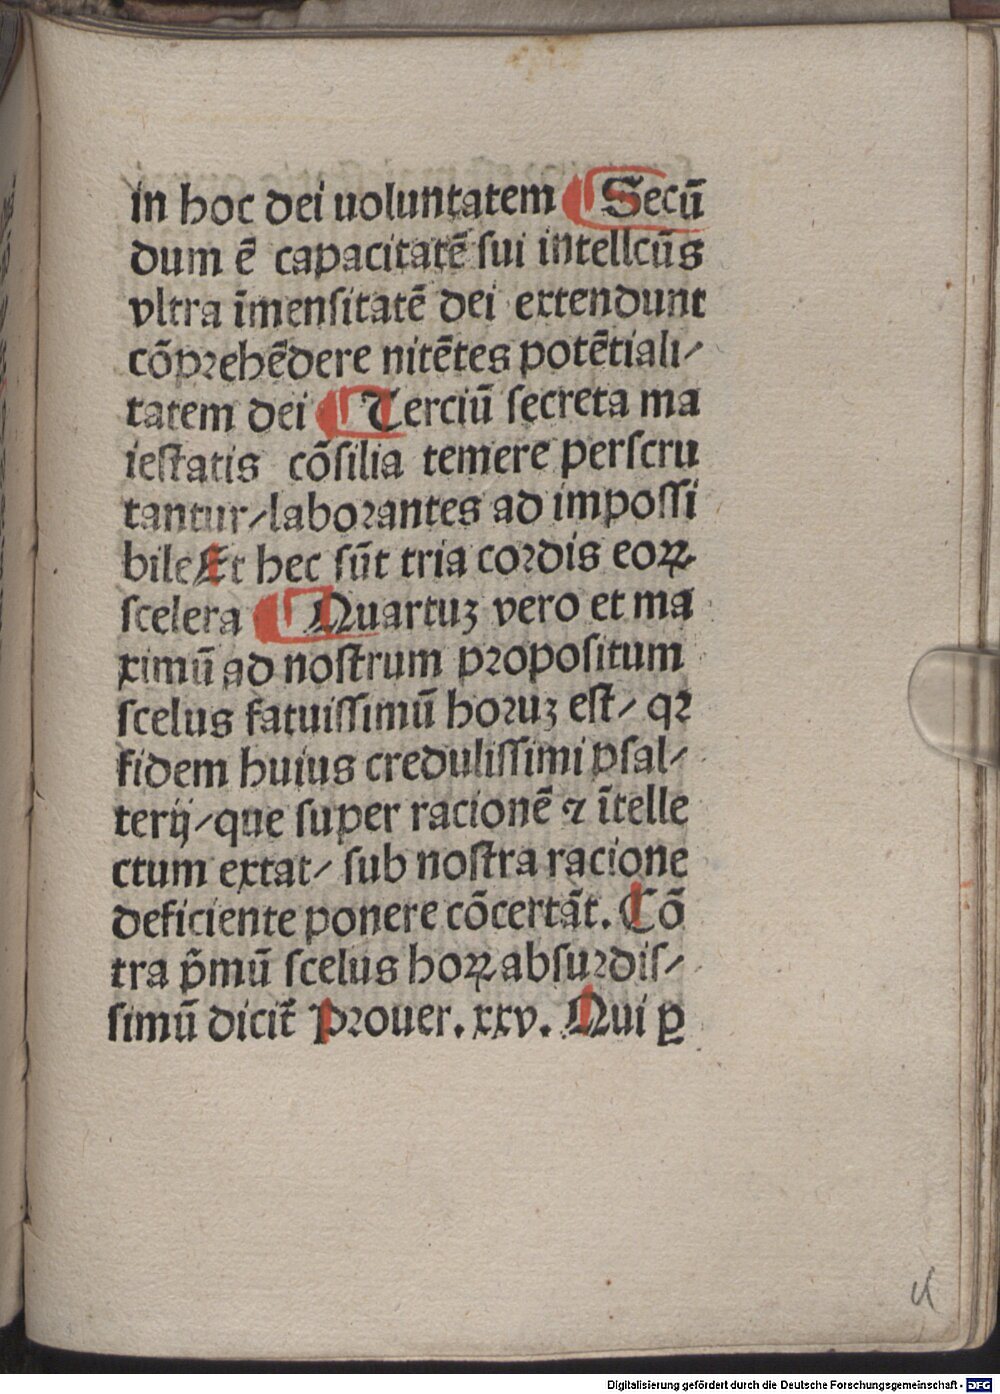 in hoc dei uoluntatem ¶ Secū
dum ē capacitatē ſui intellcūs
vltra īmenſitatē dei extendunt
cōprehēdere nitētes potētiali⸗
tatem dei ¶ Terciū ſecreta ma
ieſtatis cōſilia temere perſcru
tantur/laborantes ad impoſſi
bile Et hec ſūt tria cordis eoꝝ
ſcelera ¶ Quartuꝫ vero et ma
ximū ad noſtrum propoſitum
ſcelus fatuiſſimū horuꝫ eſt/ qꝛ
fidem huius creduliſſimi pſal/
terij/que ſuper racionē ⁊ ītelle
ctum extat/ ſub noſtra racione
deficiente ponere cōcertāt. Cō
tra p̄mū ſcelus hoꝝ abſurdiſ/
ſimū dicit̄ Prouer. xxv. Qui ꝑ
Digitalisierung gefördert durch die Deutsche Forschungsgemeinschaft - DFG